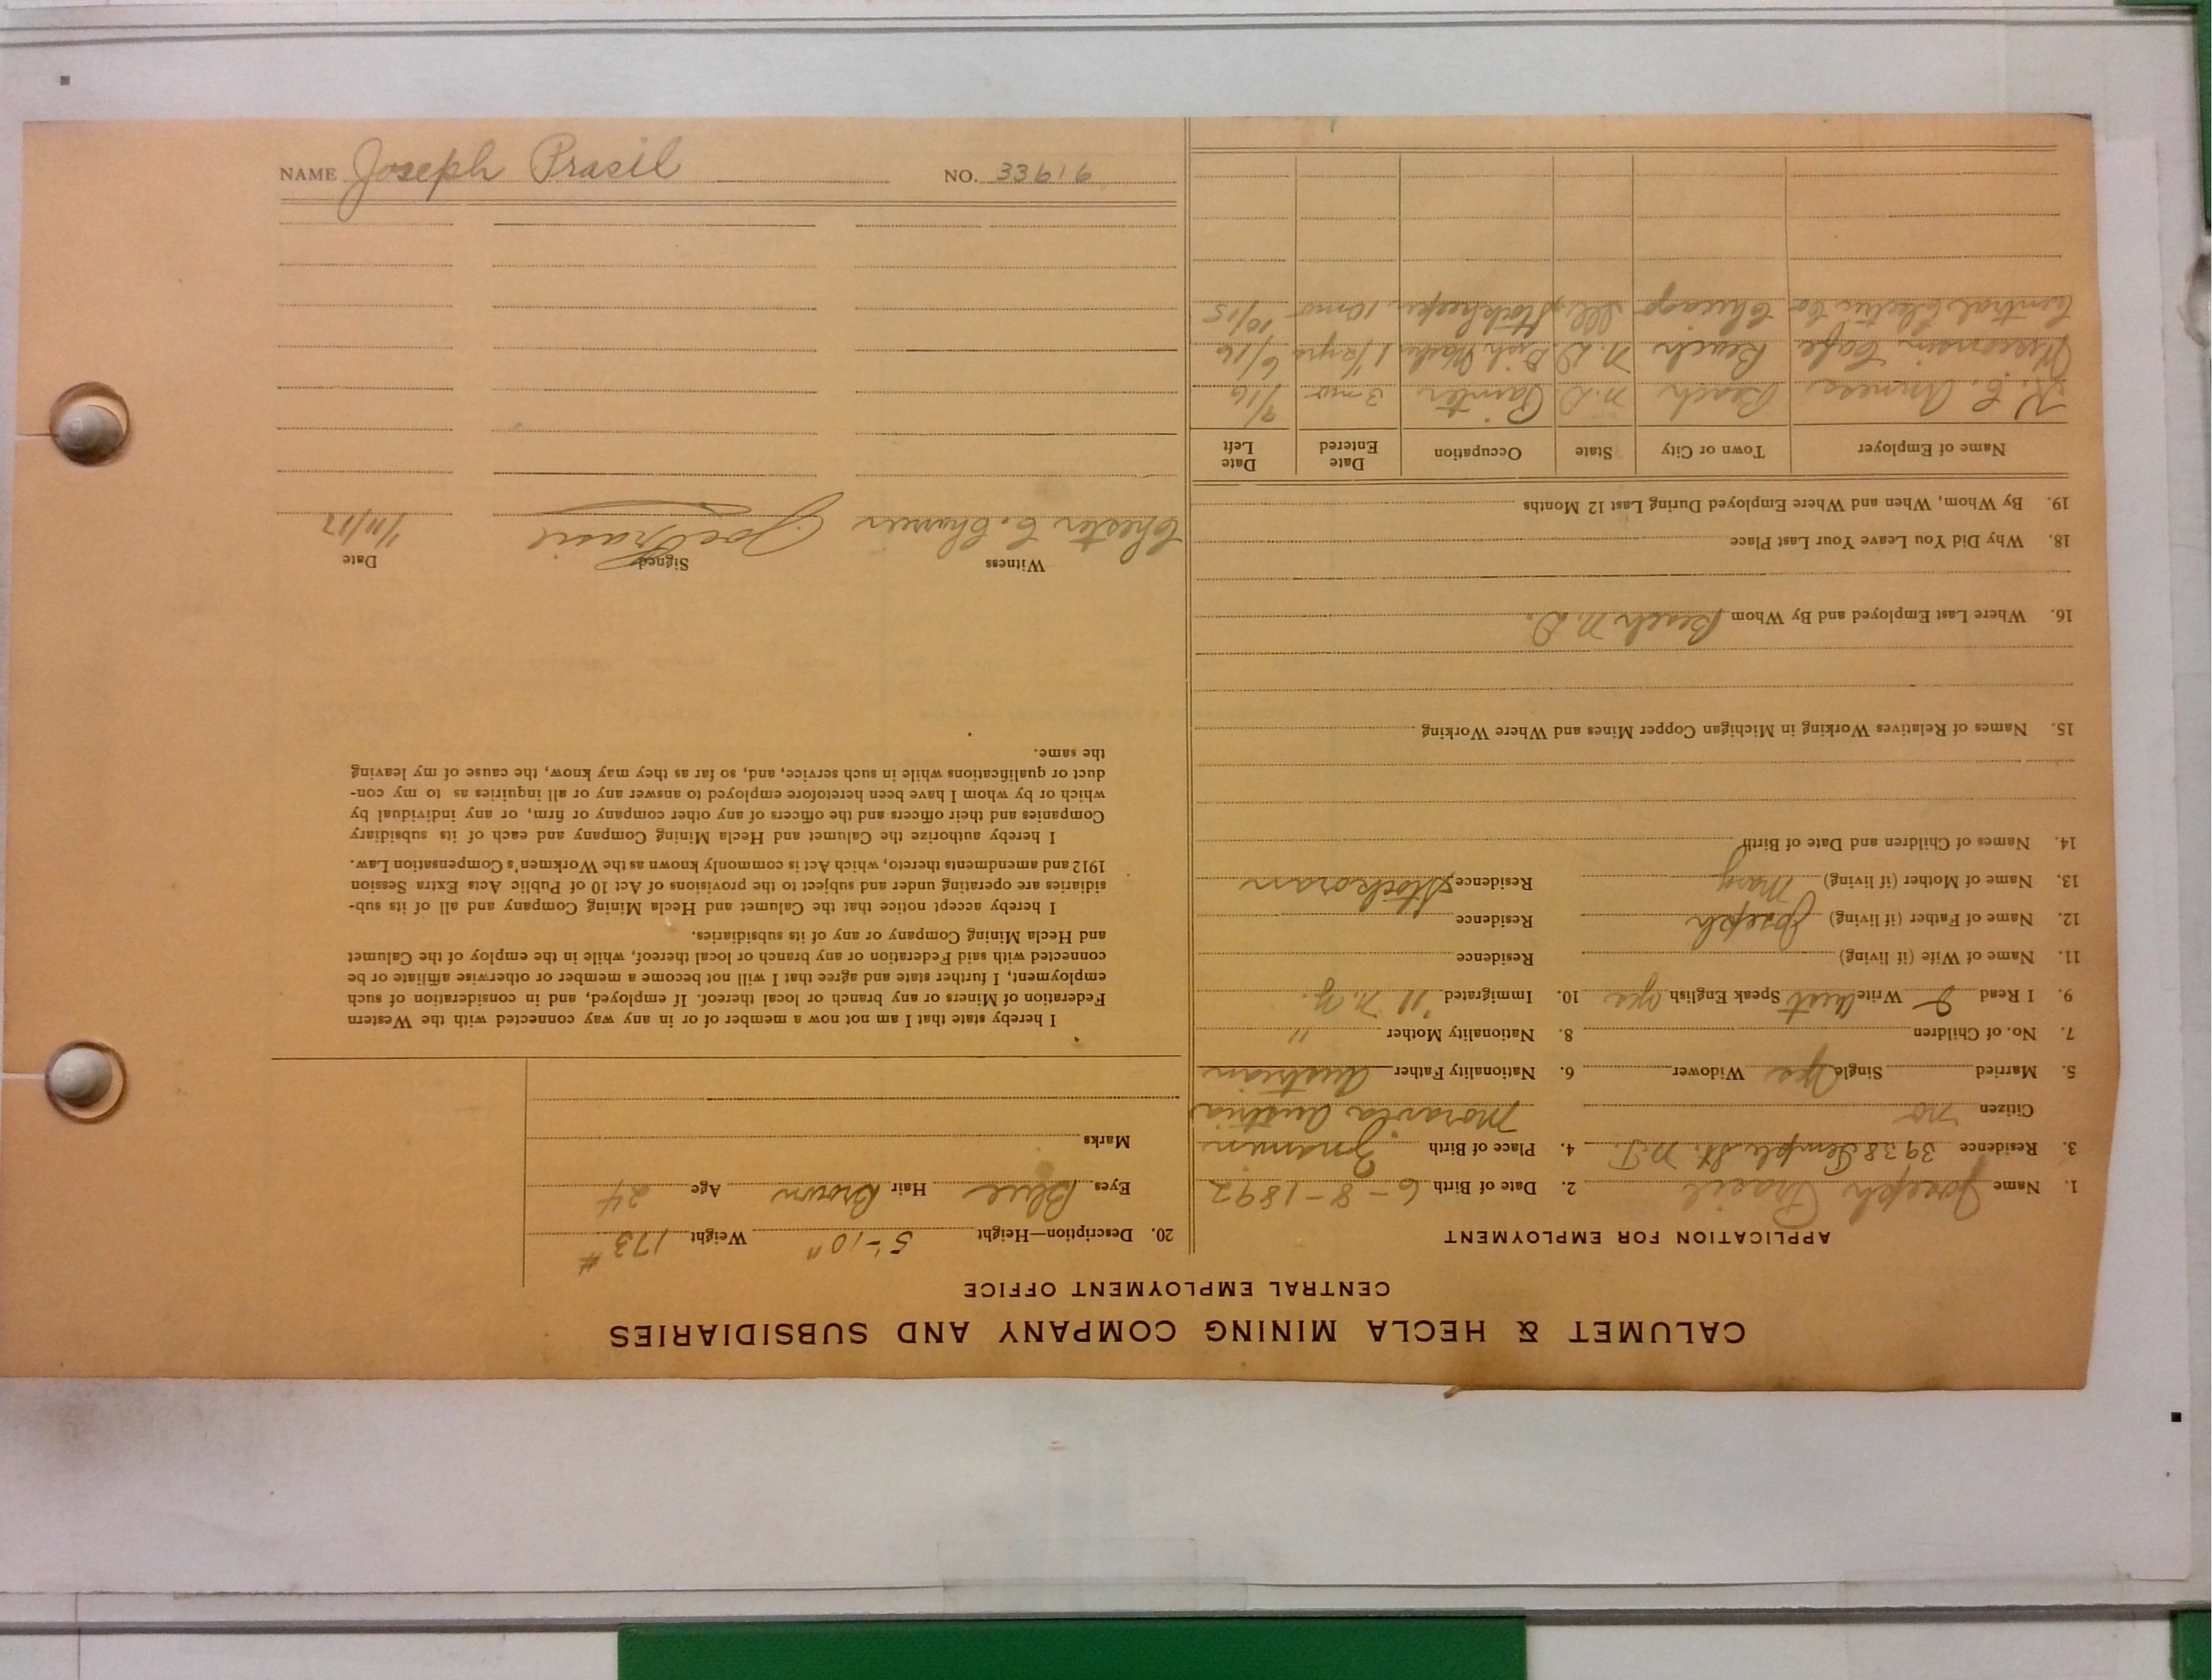 CALUMET & HECLA MINING COMPANY AND SUBSIDIARIES
CENTRAL EMPLOYMENT OFFICE
APPLICATION FOR EMPLOYMENT
1. Name Joseph Prasil 2. Date of Birth 6-8-1892
3. Residence 3938 Temple St. 4. Place of Birth
Citizen no Moravia Austria
5. Married Single yes Widower 6. Nationality Father Austrian
7. No. of Children 8. Nationality Mother "
9. I Read Write Aust Speak English yes 10. Immigrated '11 N.Y.
11. Name of Wife (if living) Residence
12. Name of Father (if living) Joseph Residence
13. Name of Mother (if living) Mary Residence
14. Names of Children and Date of Birth
15. Names of Relatives Working in Michigan Copper Mines and Where Working
16. Where Last Employed and By Whom Beach N.D.
18. Why Did You Leave Your Last Place
19. By Whom, When and Where Employed During Last 12 Months
Name of Employer Town or City State Occupation Date Entered Date Left
Beach N.D. Painter 3 mos 9/16
Wisconsin Cafe Beach N.D. Dish Washer 6/16
Central Electric Co Chicago Ill. Stockkeeper 10 mos 10/15
20. Description—Height 5'-10" Weight 173#
Eyes Blue Hair Brown Age 24
Marks
I hereby state that I am not now a member of or in any way connected with the Western
Federation of Miners or any branch or local thereof. If employed, and in consideration of such
employment, I further state and agree that I will not become a member or otherwise affiliate or be
connected with said Federation or any branch or local thereof, while in the employ of the Calumet
and Hecla Mining Company or any of its subsidiaries.
I hereby accept notice that the Calumet and Hecla Mining Company and all of its sub-
sidiaries are operating under and subject to the provisions of Act 10 of Public Acts Extra Session
1912 and amendments thereto, which Act is commonly known as the Workmen's Compensation Law.
I hereby authorize the Calumet and Hecla Mining Company and each of its subsidiary
Companies and their officers and the officers of any other company or firm, or any individual by
which or by whom I have been heretofore employed to answer any or all inquiries as to my con-
duct or qualifications while in such service, and, so far as they may know, the cause of my leaving
the same.
Witness Signed Date
Chester C. Joe Prasil 1/11/17
NAME Joseph Prasil NO. 33616